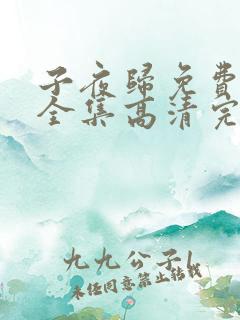 子夜歸免費
全集高清完
九九公子l
未经同意禁止转载